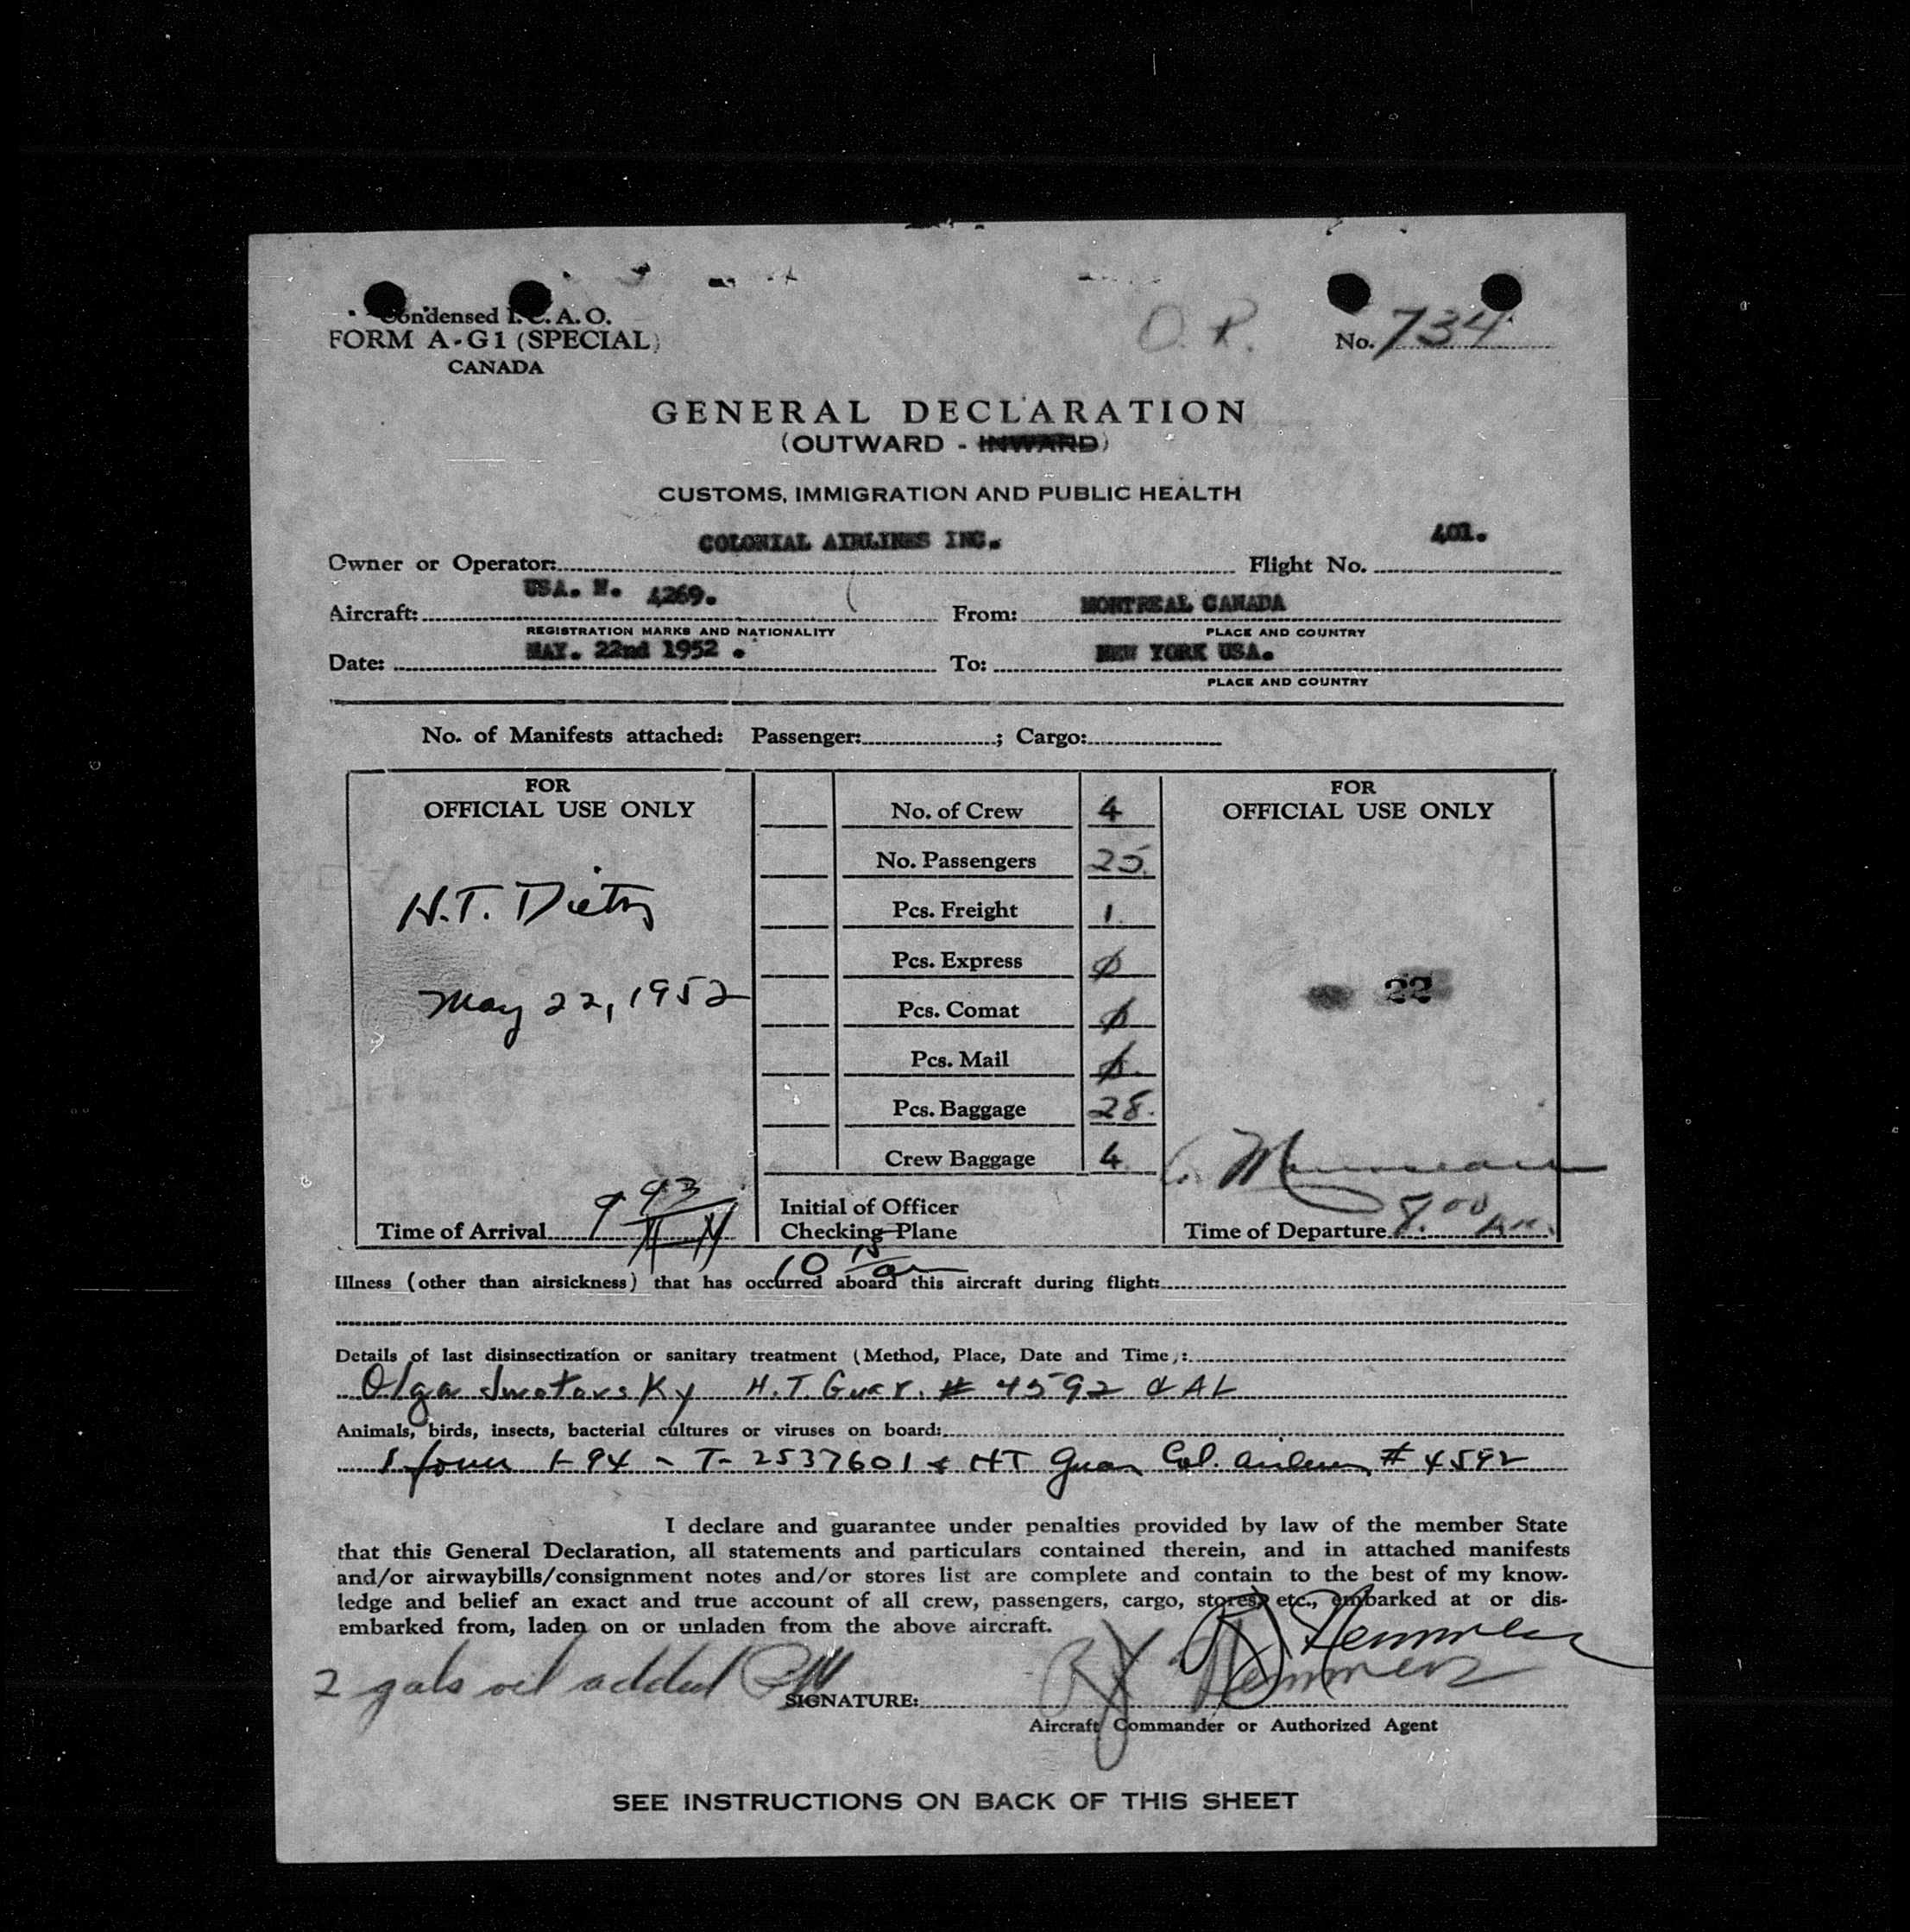 Condensed I.C.A.O.
FORM A-G1 (SPECIAL)
CANADA
O.R.
No. 734
GENERAL DECLARATION
(OUTWARD - INWARD)
CUSTOMS, IMMIGRATION AND PUBLIC HEALTH
Owner or Operator: COLONIAL AIRLINES INC. Flight No. 401.
Aircraft: USA. N. 4269. From: MONTREAL CANADA
REGISTRATION MARKS AND NATIONALITY PLACE AND COUNTRY
Date: MAY. 22nd 1952 . To: NEW YORK USA.
PLACE AND COUNTRY
No. of Manifests attached: Passenger: ; Cargo:
FOR
OFFICIAL USE ONLY
H.T. Dietz
May 22, 1952
Time of Arrival 9 43
No. of Crew 4
No. Passengers 25.
Pcs. Freight 1.
Pcs. Express ø
Pcs. Comat ø
Pcs. Mail ø.
Pcs. Baggage 28.
Crew Baggage 4
Initial of Officer
Checking Plane
FOR
OFFICIAL USE ONLY
22
Time of Departure 8.00 AM.
10 15
Illness (other than airsickness) that has occurred aboard this aircraft during flight:
Details of last disinsectization or sanitary treatment (Method, Place, Date and Time):
Olga H.T. Guar. # 4592 CAL
Animals, birds, insects, bacterial cultures or viruses on board:
1 form I-94 - T-2537601 & HT Guar Col. Airlines # 4592
I declare and guarantee under penalties provided by law of the member State
that this General Declaration, all statements and particulars contained therein, and in attached manifests
and/or airwaybills/consignment notes and/or stores list are complete and contain to the best of my know-
ledge and belief an exact and true account of all crew, passengers, cargo, stores, etc., embarked at or dis-
embarked from, laden on or unladen from the above aircraft.
2 gals oil added
SIGNATURE:
Aircraft Commander or Authorized Agent
SEE INSTRUCTIONS ON BACK OF THIS SHEET